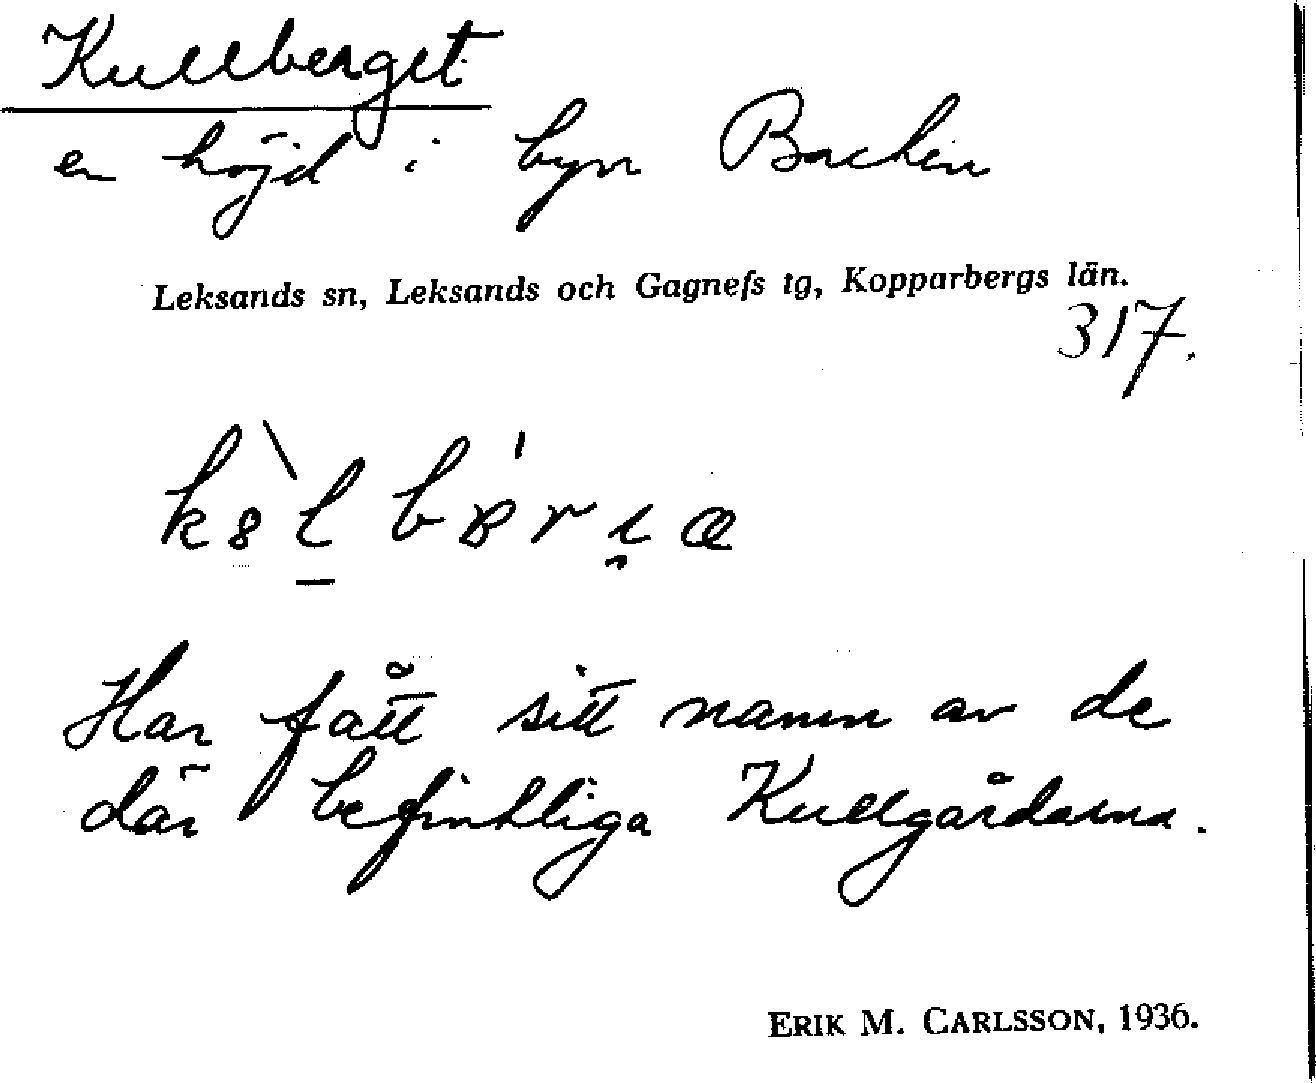 Kullberget
en höjd i byn Backen
Leksands sn, Leksands och Gagnefs tg, Kopparbergs län.
317.
Har fått sitt namn av de
där befintliga Kullgårdarna.
ERIK M. CARLSSON, 1936.